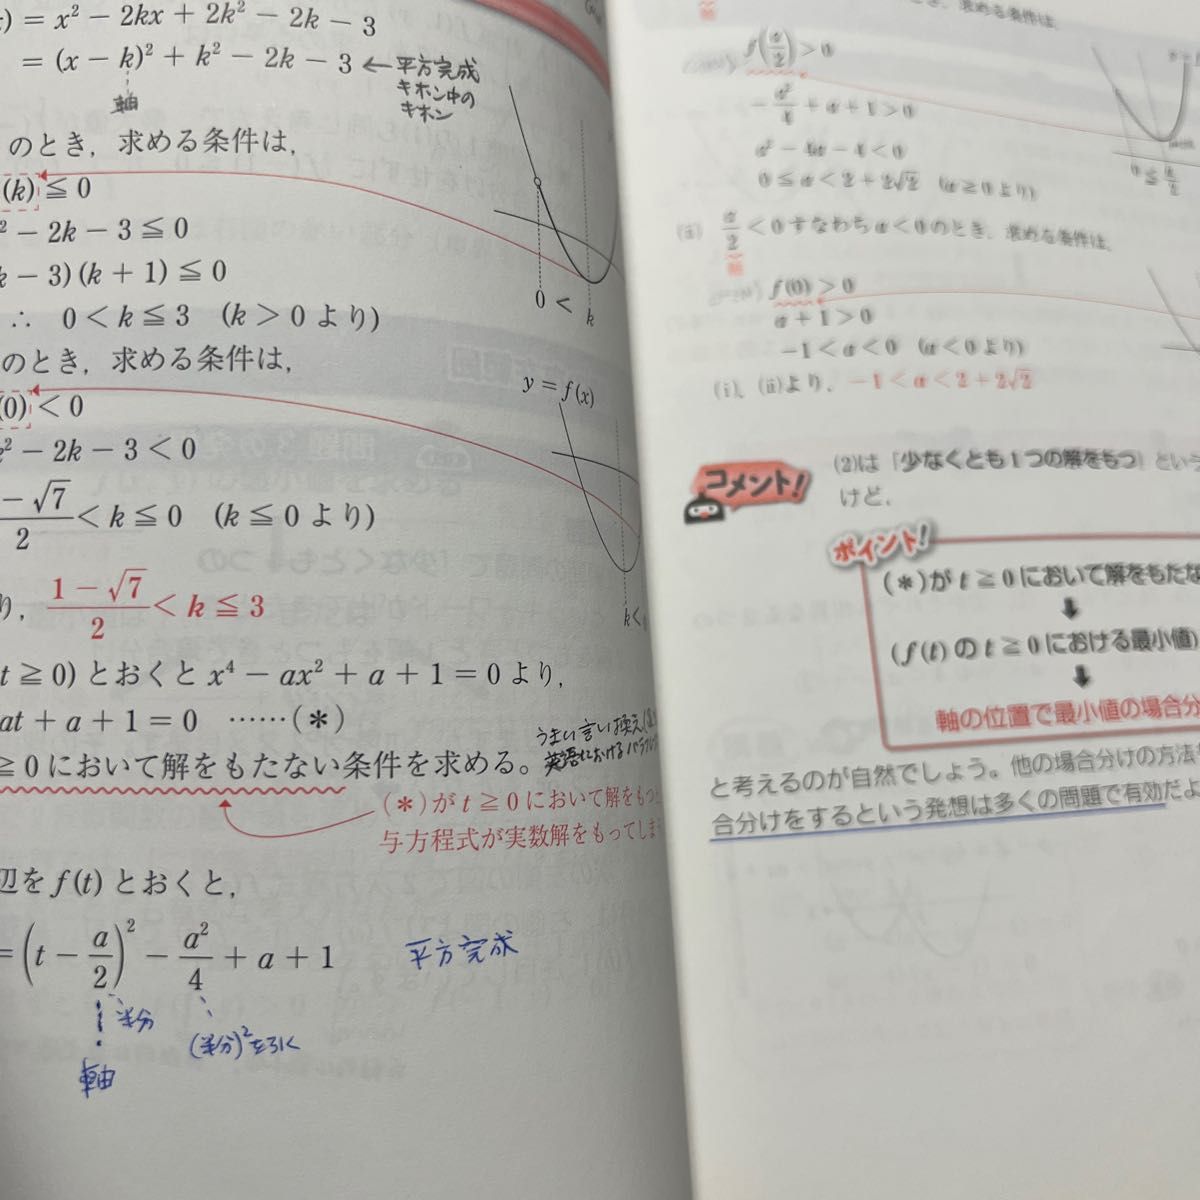 ) = x² − 2kx + 2k² − 2k − 3
= (x − k)² + k² − 2k − 3 ← 平方完成
キホン中の
キホン
軸
のとき，求める条件は，
(k) ≦ 0
² − 2k − 3 ≦ 0
k − 3)(k + 1) ≦ 0
∴ 0 < k ≦ 3 (k > 0 より)
0 <
k
のとき，求める条件は，
y = f(x)
(0) < 0
k² − 2k − 3 < 0
− √7 / 2 < k ≦ 0 (k ≦ 0 より)
k <
り， (1 − √7) / 2 < k ≦ 3
t ≧ 0) とおくと x⁴ − ax² + a + 1 = 0 より，
at + a + 1 = 0 ……(＊)
うまい言い換え
英語における
≧ 0 において解をもたない条件を求める。
(＊)が t ≧ 0 において解をもつ
与方程式が実数解をもってしま
辺を f(t) とおくと，
= (t − a/2)² − a²/4 + a + 1 平方完成
半分
(半分)²を引く
軸
求める条件は，
f(a/2) > 0
− a²/4 + a + 1 > 0
a² − 4a − 4 < 0
0 ≦ a < 2 + 2√2 (a ≧ 0 より)
0 ≦ a/2
(ii) a/2 < 0 すなわち a < 0 のとき，求める条件は，
軸
f(0) > 0
a + 1 > 0
−1 < a < 0 (a < 0 より)
(i)，(ii)より， −1 < a < 2 + 2√2
コメント!
(2)は「少なくとも1つの解をもつ」という
けど，
ポイント!
(＊)が t ≧ 0 において解をもたな
↓
(f(t) の t ≧ 0 における最小値)
↓
軸の位置で最小値の場合分
と考えるのが自然でしょう。他の場合分けの方法
合分けをするという発想は多くの問題で有効だよ